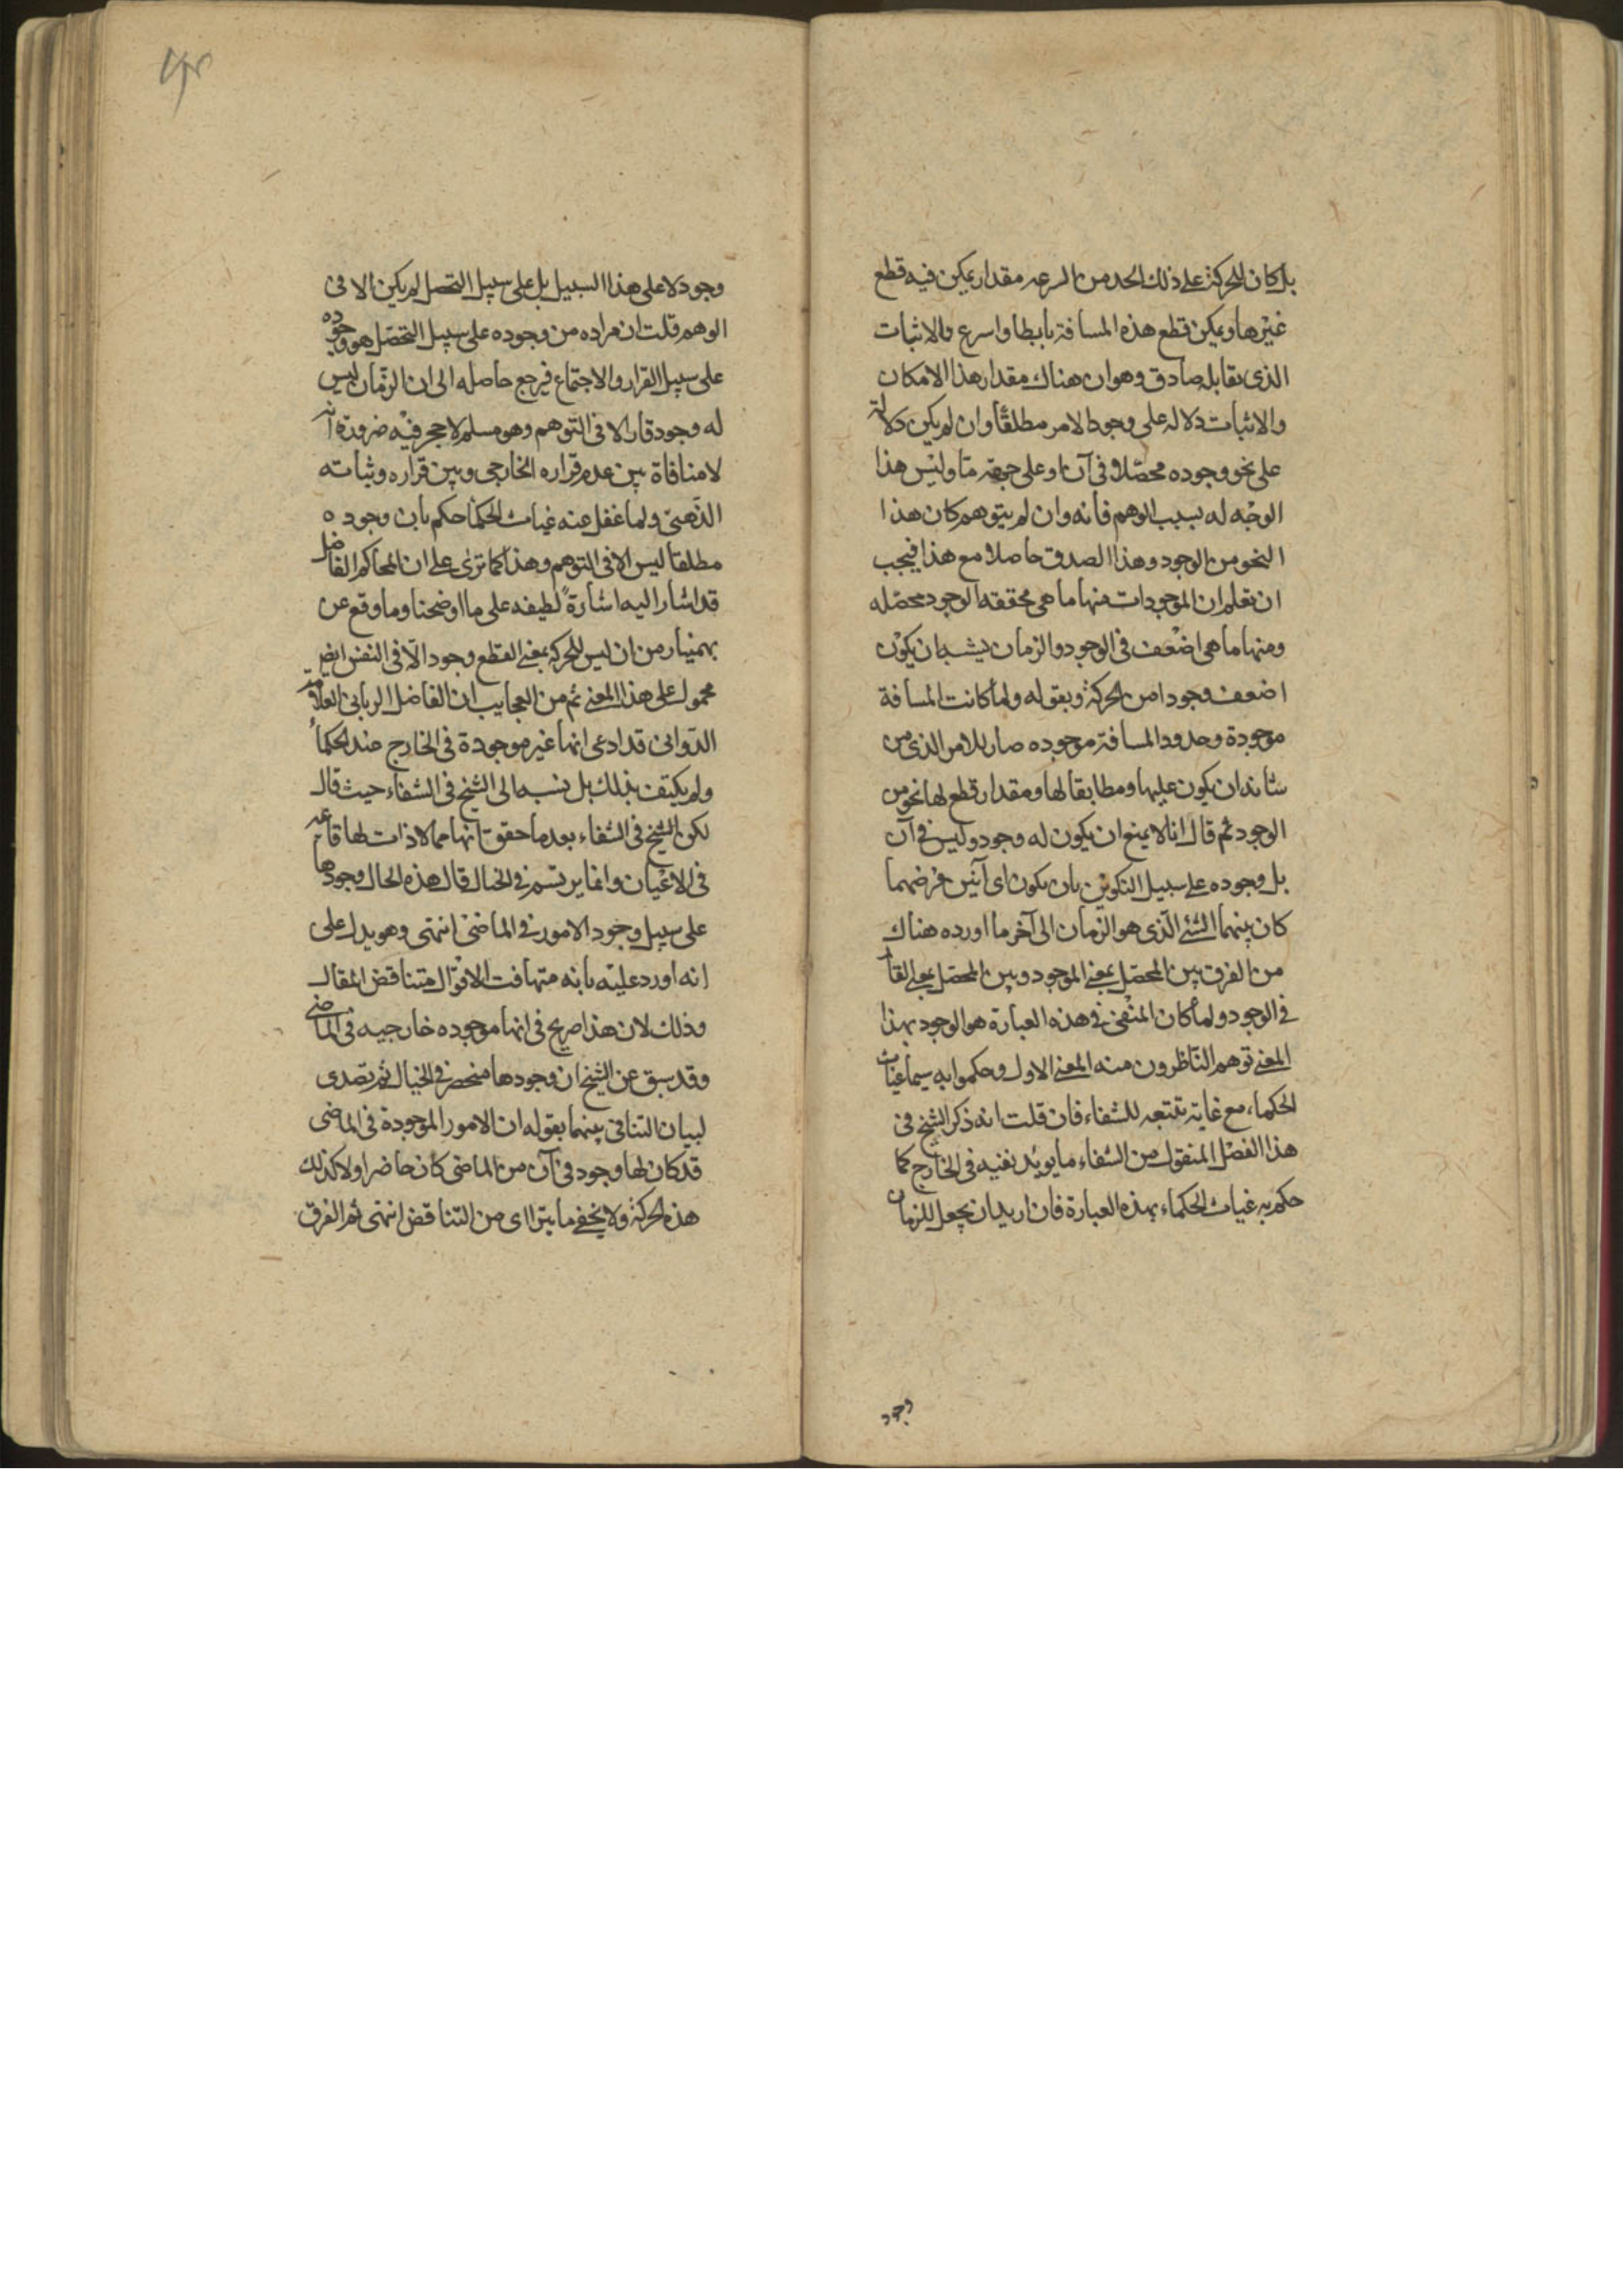 بل كان للحركة على ذلك الحد من السرعه مقدار يمكن فيه قطع
غيرها ويمكن قطع هذه المسافة بابطا واسرع والاثبات
الذى يقابله صادق وهو ان هناك مقدار هذا الامكان
والاثبات دلاله على وجود الامر مطلقًا وان لم يكن دلالة
على نحو وجوده محصّلا فى آن او على جهة مّا وليس هذا
الوجه له بسبب الوهم فانه وان لم يتوهم كان هذا
النحو من الوجود وهذا الصدق حاصلا مع هذا فيجب
ان تعلم ان الموجودات منها ما هى محققه الوجود محصّله
ومنها ما هى اضعف فى الوجود والزمان يشبه ان يكون
اضعف وجودا من الحركة وبقوله ولما كانت المسافة
موجودة وحدود المسافة موجوده صار للامر الذى من
شانه ان يكون عليها ومطابقا لها ومقدار قطع لها نحو من
الوجود ثم قال انا لا يمنع ان يكون له وجود وليس فى آن
بل وجوده على سبيل التكوين بان يكون اى آنين فرضهما
كان بينهما الشئ الذى هو الزمان الى آخر ما اورده هناك
من الفرق بين المحصّل بمعنى الموجود وبين المحصّل بمعنى القار
فى الوجود ولما كان المنفى فى هذه العبارة هو الوجود بهذا
المعنى توهم النّاظرون منه المعنى الاول وحكموا به سيما غياث
الحكماء مع غاية تتبعه للشفاء فان قلت انه ذكر الشيخ فى
هذا الفصل المنقول من الشفاء ما يويد نفيه فى الخارج كما
حكم به غياث الحكماء بهذه العبارة فان اريد ان يجعل للزمان
وجود
وجود لا على هذا السبيل بل على سبيل التحصل لم يكن الا فى
الوهم قلت ان مراده من وجوده على سبيل التحصّل هو وجوده
على سبيل القرار والاجتماع فيرجع حاصله الى ان الزّمان ليس
له وجود قار الا فى التوهم وهو مسلم لا حجر فيه ضرورة انه
لا منافاة بين عدم قراره الخارجى وبين قراره وثباته
الذّهنى ولما غفل عنه غياث الحكما حكم بان وجوده
مطلقا ليس الا فى التوهم وهذا كما ترى على ان المحاكم الفاضل
قد اشار اليه اشارةً لطيفه على ما اوضحنا وما وقع عن
بهمنيار من ان ليس للحركه بمعنى القطع وجود الّا فى النفس ايض
محمول على هذا المعنى ثم من العجايب ان الفاضل الربانى العلامة
الدّوانى قد ادعى انها غير موجودة فى الخارج عند الحكماء
ولم يكتف بذلك بل نسبه الى الشيخ فى الشفاء حيث قال
لكن الشيخ فى الشفاء بعد ما حقق انها مما لا ذات لها قائمه
فى الاعيان وانما يرتسم فى الخيال قال هذه الحال وجودها
على سبيل وجود الامور فى الماضى انتهى وهو يدل على
انه اورد عليه بانه متهافت الاقوال متناقض المقال
وذلك لان هذا صريح فى انها موجوده خارجيه فى الماضى
وقد سبق عن الشيخ ان وجودها منحصر فى الخيال ثم تصدى
لبيان التنافى بينهما بقوله ان الامور الموجودة فى الماضى
قد كان لها وجود فى آن من الماضى كان حاضرا ولا كذلك
هذه الحركة ولا يخفى ما يتراى من التناقض انتهى ثم الفرق